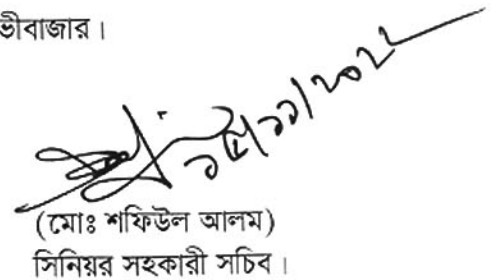 ভীবাজার।
১৫/১১/২০২২
(মোঃ শফিউল আলম)
সিনিয়র সহকারী সচিব।